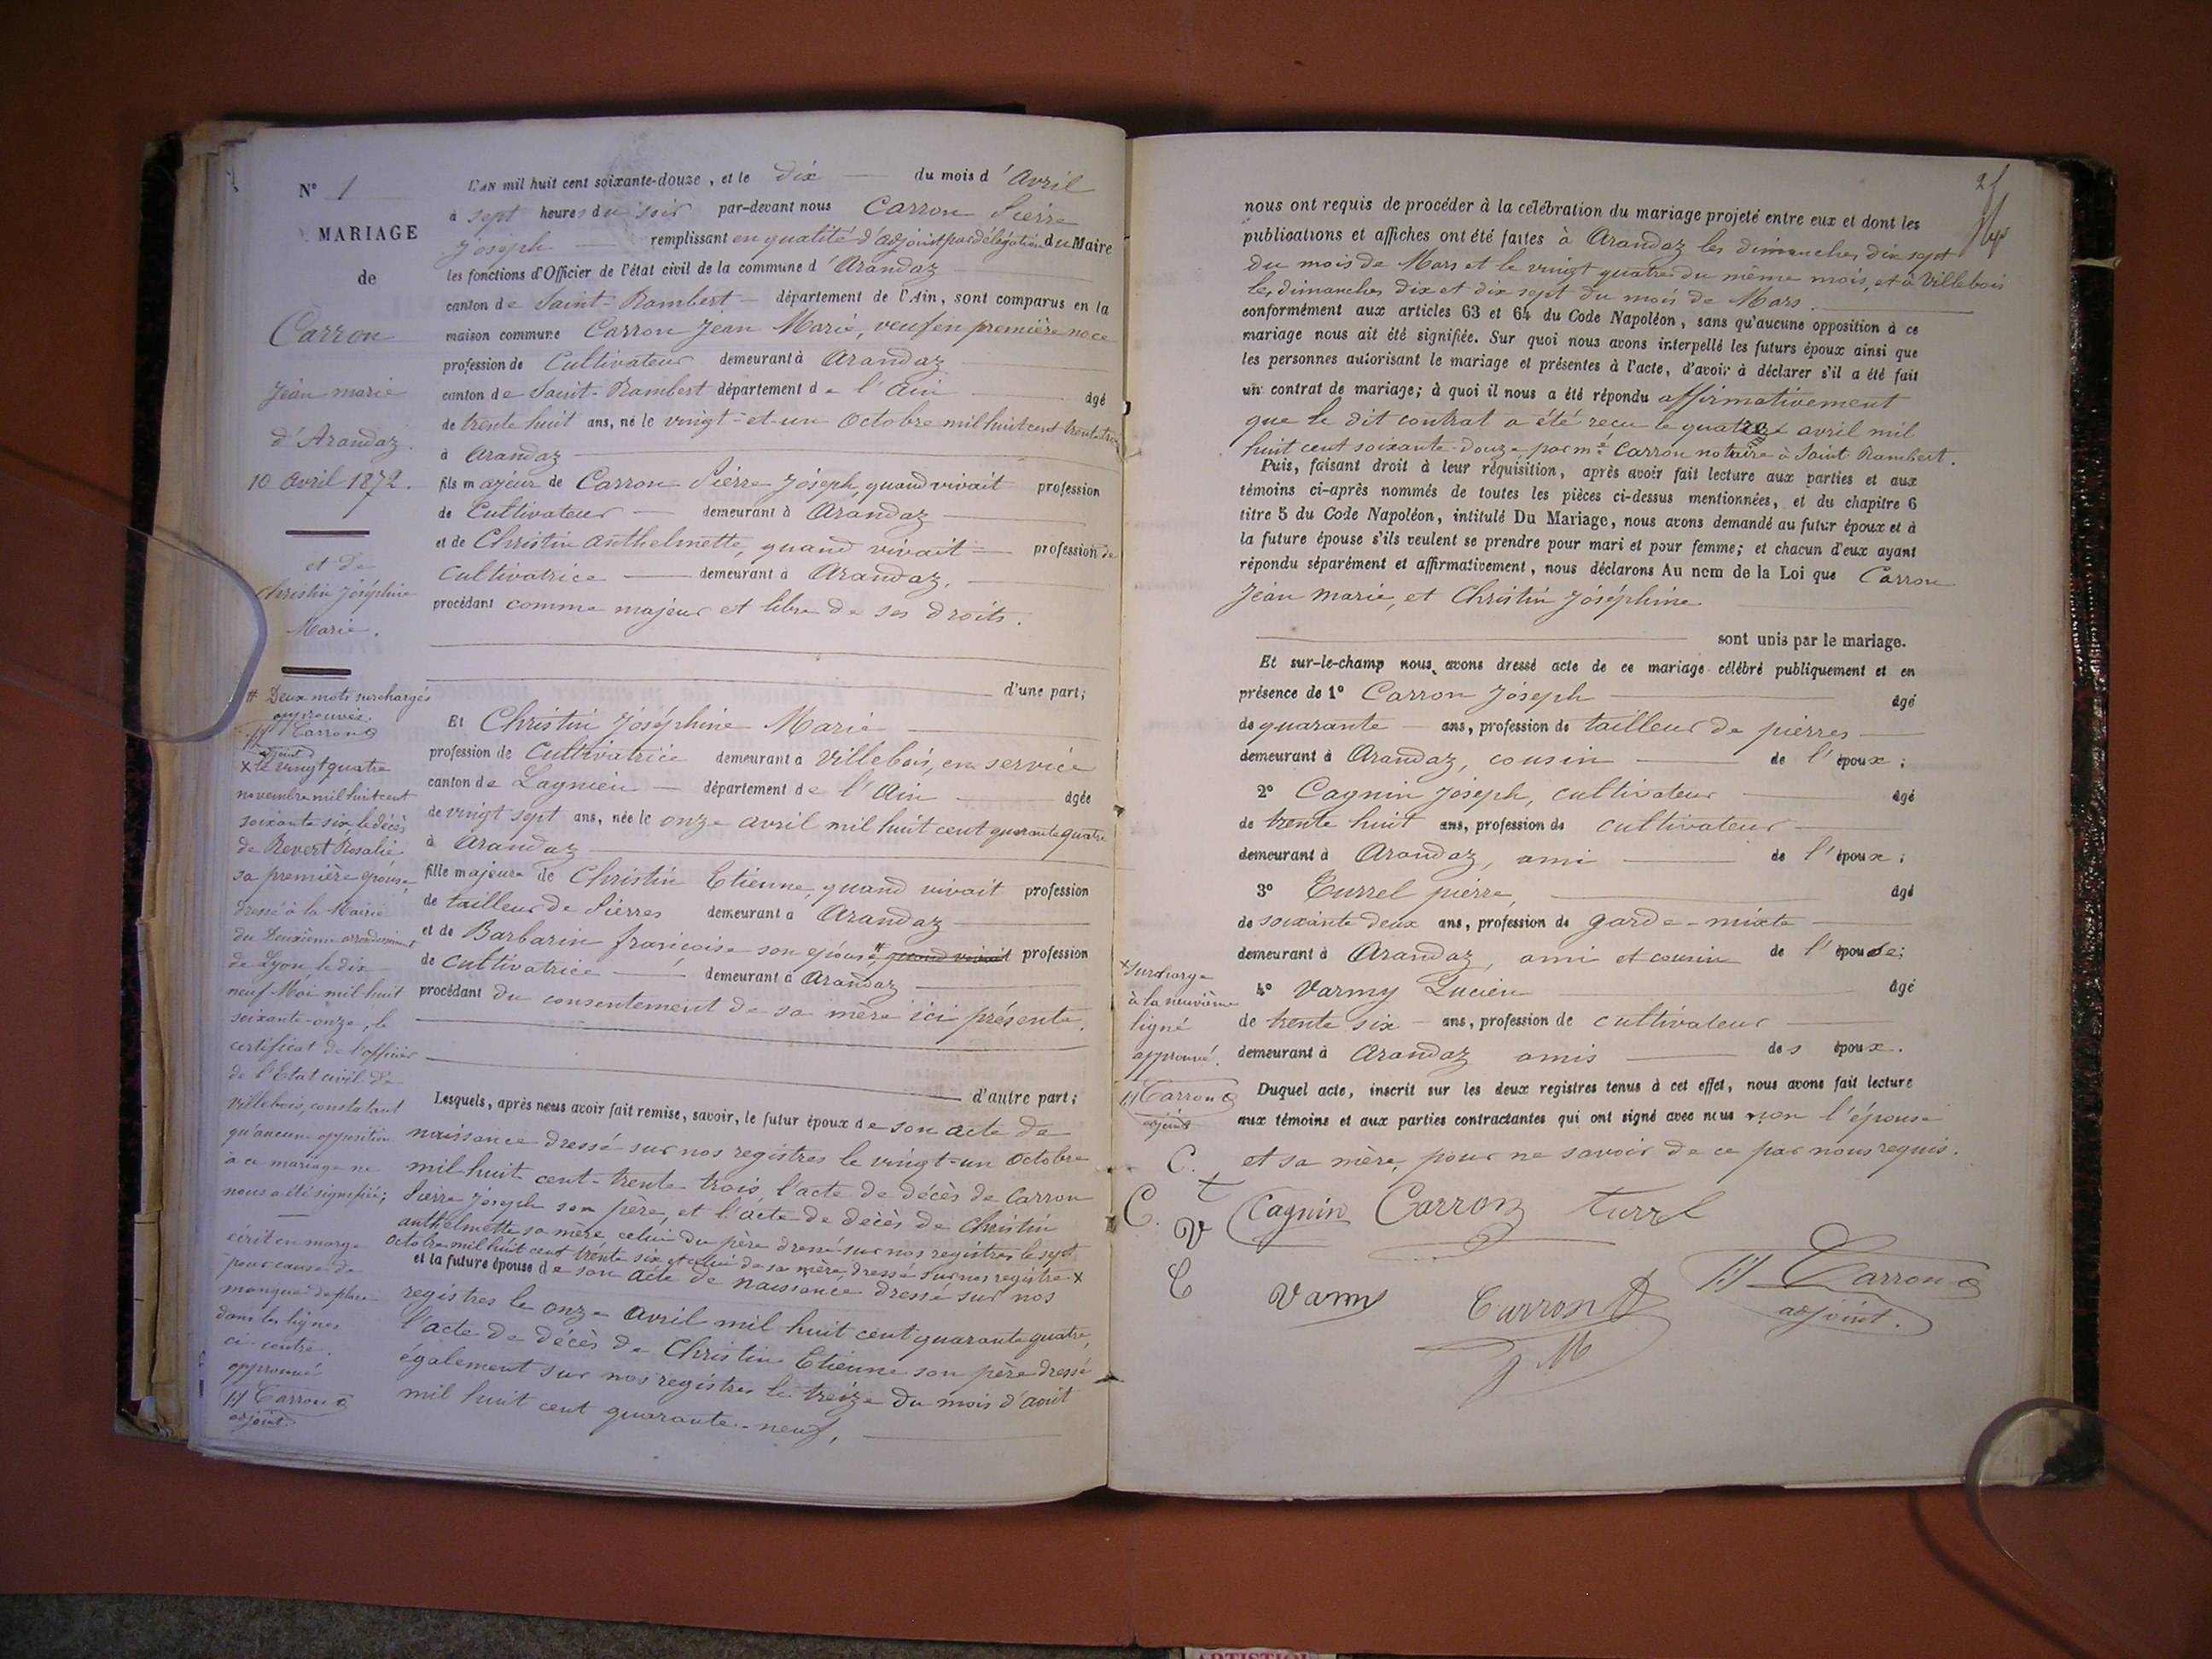 N° 1
MARIAGE
de
Carron
Jean marie
d'Arandaz.
10 avril 1872.
et de
Christin Joséphine
Marie.
# Deux mots surchargés
approuvés.
Carron
adjoint
X le vingt quatre
novembre mil huit cent
soixante six, le décès
de Revert Rosalie
sa première épouse
dressé à la Mairie
du Deuxième arrondissement
de Lyon le dix
neuf Mai mil huit
soixante-onze, le
certificat de l'officier
de l'Etat civil de
villebois, constatant
qu'aucune opposition
à ce mariage ne
nous a été signifiée;
écrit en marge
pour cause de
manque de place
dans les lignes
ci-contre.
approuvé
Carron
adjoint
L'AN mil huit cent soixante-douze, et le dix du mois d'Avril
à sept heures du soir par-devant nous Carron Pierre
Joseph remplissant en qualité d'adjoint par délégation du Maire
les fonctions d'Officier de l'état civil de la commune d'Arandaz
canton de Saint-Rambert département de l'Ain, sont comparus en la
maison commune Carron Jean Marie, veuf en première noce
profession de Cultivateur demeurant à Arandaz
canton de Saint-Rambert département de l'Ain âgé
de trente huit ans, né le vingt-et-un Octobre mil huit cent trente trois
à Arandaz
fils majeur de Carron Pierre Joseph, quand vivait profession
de Cultivateur demeurant à Arandaz
et de Christin Anthelmette, quand vivait profession de
cultivatrice demeurant à Arandaz,
procédant comme majeur et libre de ses droits.
d'une part;
Et Christin Joséphine Marie
profession de Cultivatrice demeurant à Villebois, en service
canton de Lagnieu département de l'Ain âgée
de vingt sept ans, née le onze avril mil huit cent quarante quatre
à Arandaz
fille majeure de Christin Etienne, quand vivait profession
de tailleur de Pierres demeurant à Arandaz
et de Barbarin françoise son épouse, # quand vivait profession
de cultivatrice demeurant à Arandaz
procédant du consentement de sa mère ici présente.
d'autre part;
Lesquels, après nous avoir fait remise, savoir, le futur époux de son acte de
naissance dressé sur nos registres le vingt-un Octobre
mil huit cent-trente trois, l'acte de décès de Carron
Pierre Joseph son père, et l'acte de décès de Christin
anthelmette sa mère, celui du père dressé sur nos registres le sept
octobre mil huit cent trente six et celui de sa mère, dressé sur nos registre X
et la future épouse de son acte de naissance dressé sur nos
registres le onze avril mil huit cent quarante quatre,
l'acte de décès de Christin Etienne son père dressé
également sur nos registres le treize du mois d'août
mil huit cent quarante-neuf,
nous ont requis de procéder à la célébration du mariage projeté entre eux et dont les
publications et affiches ont été faites à Arandaz les dimanches dix sept
du mois de Mars et le vingt quatre du même mois, et à Villebois
les dimanches dix et dix sept du mois de Mars.
conformément aux articles 63 et 64 du Code Napoléon, sans qu'aucune opposition à ce
mariage nous ait été signifiée. Sur quoi nous avons interpellé les futurs époux ainsi que
les personnes autorisant le mariage et présentes à l'acte, d'avoir à déclarer s'il a été fait
un contrat de mariage; à quoi il nous a été répondu affirmativement
que le dit contrat a été reçu le quatre avril mil
huit cent soixante-douze par me Carron notaire à Saint Rambert.
Puis, faisant droit à leur réquisition, après avoir fait lecture aux parties et aux
témoins ci-après nommés de toutes les pièces ci-dessus mentionnées, et du chapitre 6
titre 5 du Code Napoléon, intitulé Du Mariage, nous avons demandé au futur époux et à
la future épouse s'ils veulent se prendre pour mari et pour femme; et chacun d'eux ayant
répondu séparément et affirmativement, nous déclarons Au nom de la Loi que Carron
Jean marie, et Christin Joséphine
sont unis par le mariage.
Et sur-le-champ nous avons dressé acte de ce mariage célébré publiquement et en
présence de 1° Carron Joseph âgé
de quarante ans, profession de tailleur de pierres
demeurant à Arandaz, cousin de l'époux;
2° Cagnin Joseph, cultivateur âgé
de trente huit ans, profession de cultivateur
demeurant à Arandaz, ami de l'époux;
3° Turrel pierre, âgé
de soixante deux ans, profession de garde-mixte
demeurant à Arandaz, ami et cousin de l'épouse;
4° Varmy Lucien âgé
de trente six ans, profession de cultivateur
demeurant à Arandaz amis des époux.
Duquel acte, inscrit sur les deux registres tenus à cet effet, nous avons fait lecture
aux témoins et aux parties contractantes qui ont signé avec nous non l'épouse
et sa mère, pour ne savoir de ce par nous requis.
X Surcharge
à la neuvième
ligne
approuvé.
Carron
adjoint
C.
t
C.
V
C
Cagnin Carron turrel
Varmy Carron
J M
Carron
adjoint.